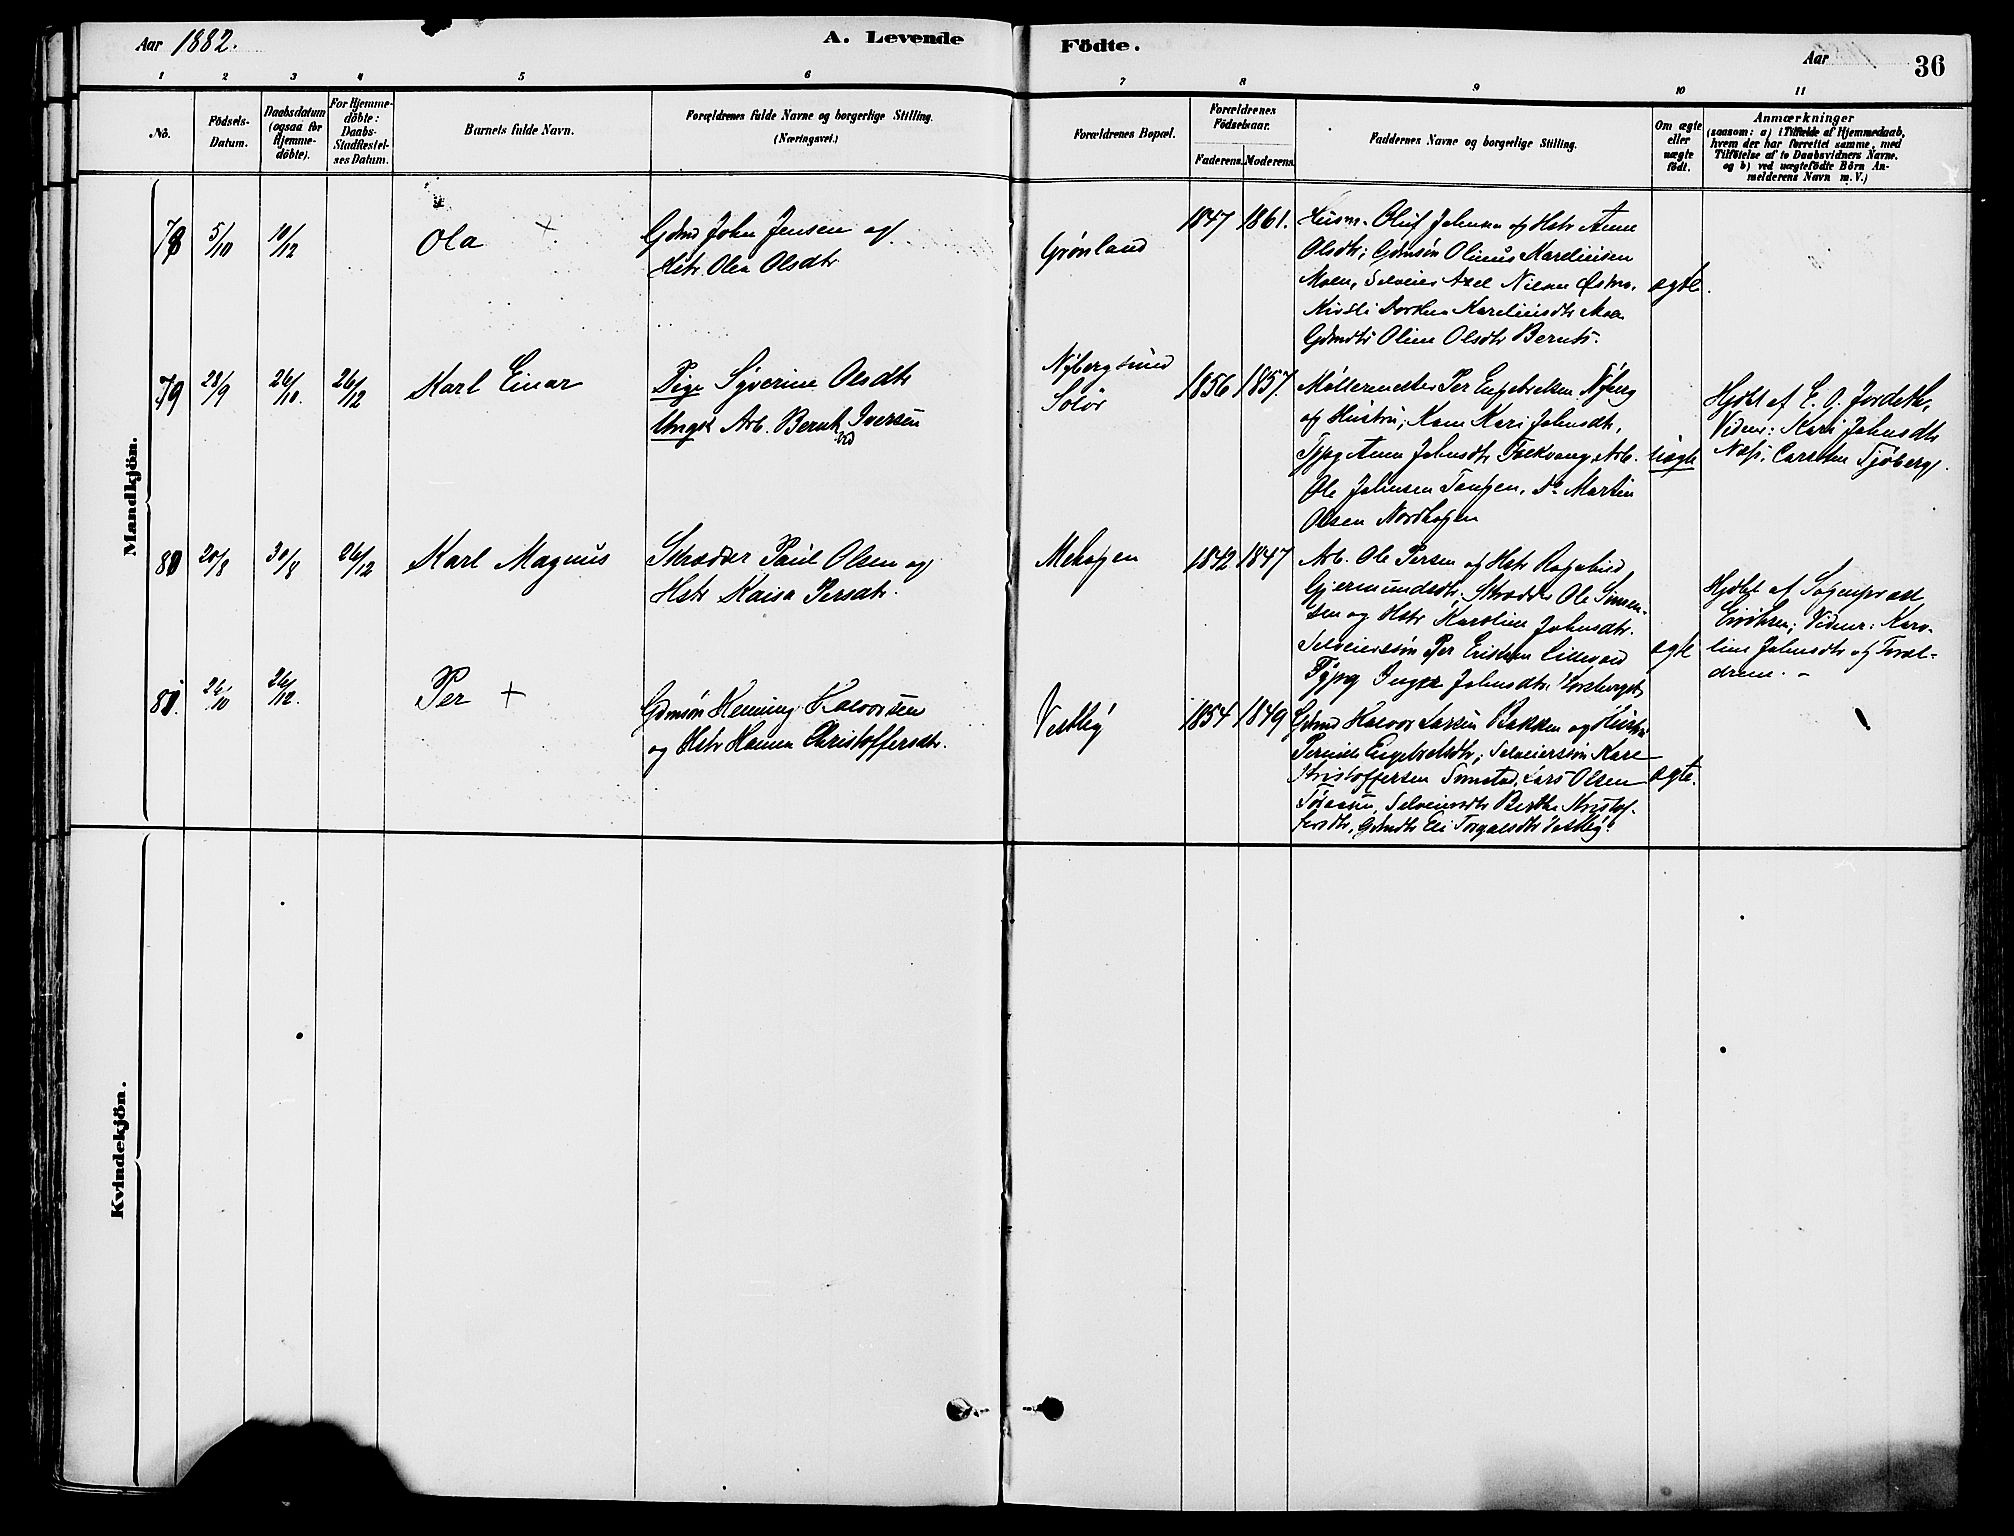 Aar 1882.
A. Levende
Födte.
Aar
36
1
2
3
4
5
6
7
8
9
10
11
No.
Födsels-
Datum.
Daabsdatum
(ogsaa for
Hjemme-
döbte).
For Hjemme-
döbte:
Daabs-
Stadfæstel-
ses Datum.
Barnets fulde Navn.
Forældrenes fulde Navne og borgerlige Stilling.
(Næringsvei.)
Forældrenes Bopæl.
Forældrenes
Födselsaar.
Faderens.
Moderens.
Faddernes Navne og borgerlige Stilling.
Om ægte
eller
uægte
födt.
Anmærkninger
(saasom: a) i Tilfælde af Hjemmedaab,
hvem der har forrettet samme, med
Tilföielse af to Daabsvidners Navne.
og b) ved uægtefödte Börn An-
melderens Navn m. V.)
Mandkjön.
78
5/10
10/12
Ola
Gdmd John Jensen og
Hstr. Olea Olsdtr
Grønland
1847
1861.
Husm. Oluf Johnsen og Hstr Anne
Olsdtr; Gdmsøn Olinus Karelinsen
Moen, Selveier Axel Nilsen Østmo.
Dorthea Karelinsdtr Moen
Gdmdtr Oline Olsdtr Bernts.
ægte.
79
28/9
26/10.
26/12
Karl Einar
Pige Syverine Olsdtr
Ungk Arb. Bernt Iversen
Nybergsund
Solør
1856
1857.
Møllermester Per Engebretsen Nyberg
og Hustru; Kone Kari Johnsdtr,
Tjpg Anne Johnsdtr Folkvang, Arb.
Ole Johnsen Tangen, Do Martin
Olsen Nordhagen
uægte
Hjdbt af E. O. Jordeth,
Vidner: Kari Johnsdtr
Næss, Carsten Sjøberg.
80
20/8
30/8
26/12
Karl Magnus
Skrædder Paul Olsen og
Hstr Kaisa Persdtr.
Mehagen
1842
1847
Arb. Ole Persen og Hstr Ragnhild
Gjermundsdtr; Skrædder Ole Simen-
sen og Hstr Karoline Johnsdtr.
Selveiersøn Per Eriksen Lillevold
Tjpg Inger Johnsdtr
ægte
Hjdbt af Sognepræst
Eriksen; Vidner: Karo-
line Johnsdtr og Foræl-
drene. -
81.
26/10
26/12.
Per +
Gdmsøn Henning Halvorsen
og Hstr Hanna Christoffersdtr.
Vestby
1854
1849
Gdmd Halvor Larsen Bakken og Hustru
Pernille Engebretsdtr; Selveiersøn Karl
Kristoffersen Sømstad, Lars Olsen
Selveierdtr Berthe Kristof-
fersdtr, Gdmdtr Eli Torgalsdtr Vestby.
ægte.
Kvindekjön.